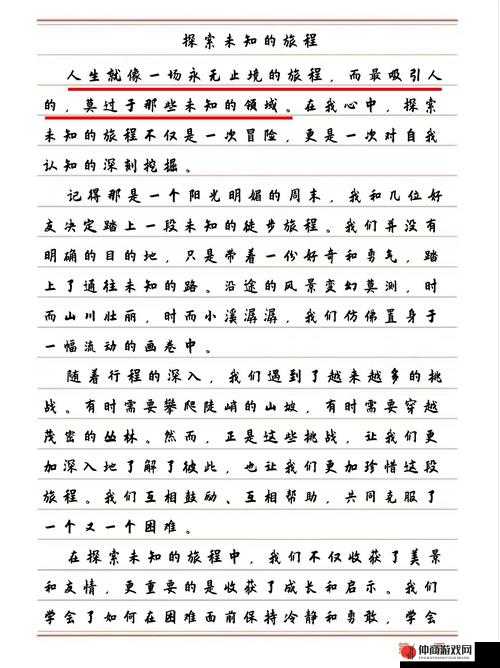 探索未知的旅程
人生就像一场永无止境的旅程，而最吸引人
的，莫过于那些未知的领域。在我心中，探索
未知的旅程不仅是一次冒险，更是一次对自我
认知的深刻挖掘。
记得那是一个阳光明媚的周末，我和几位好
友决定踏上一段未知的徒步旅程。我们并没有
明确的目的地，只是带着一份好奇和勇气，踏
上了通往未知的路。沿途的风景变幻莫测，时
而山川壮丽，时而小溪潺潺，我们仿佛置身于
一幅流动的画卷中。
随着行程的深入，我们遇到了越来越多的挑
战。有时需要攀爬陡峭的山坡，有时需要穿越
茂密的丛林。然而，正是这些挑战，让我们更
加深入地了解了彼此，也让我们更加珍惜这段
旅程。我们互相鼓励、互相帮助，共同克服了
一个又一个困难。
在探索未知的旅程中，我们不仅收获了美景
和友情，更重要的是收获了成长和启示。我们
学会了如何在困难面前保持冷静和勇敢，学会
仲商游戏网